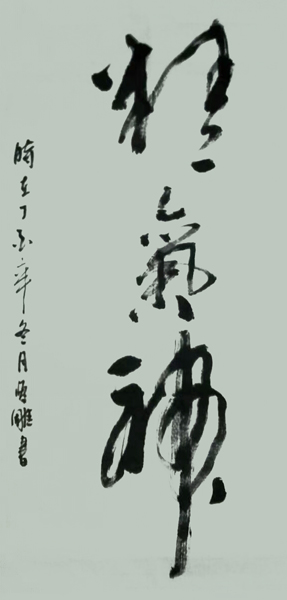 精氣神
時在丁酉年冬月
書